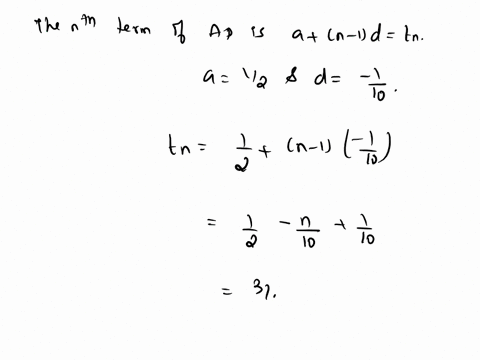 The nth term of AP is a+(n-1)d=tn.
a= 1/2 & d= -1/10.
tn= 1/2 + (n-1) (-1/10)
= 1/2 - n/10 + 1/10
=